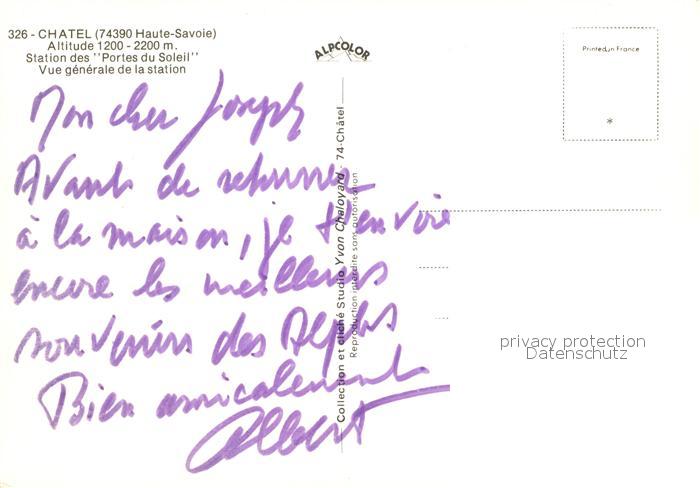 326 - CHATEL (74390 Haute-Savoie)
Altitude 1200 - 2200 m.
Station des "Portes du Soleil"
Vue générale de la station
ALPCOLOR
Printed in France
*
Mon cher Joseph
Avant de retourner
à la maison, je t'envoie
encore les meilleurs
souvenirs des Alpes
Bien amicalement
Albert
Collection et cliché Studio Yvon Chaloyard - 74-Châtel
Reproduction interdite sans autorisation
privacy protection
Datenschutz